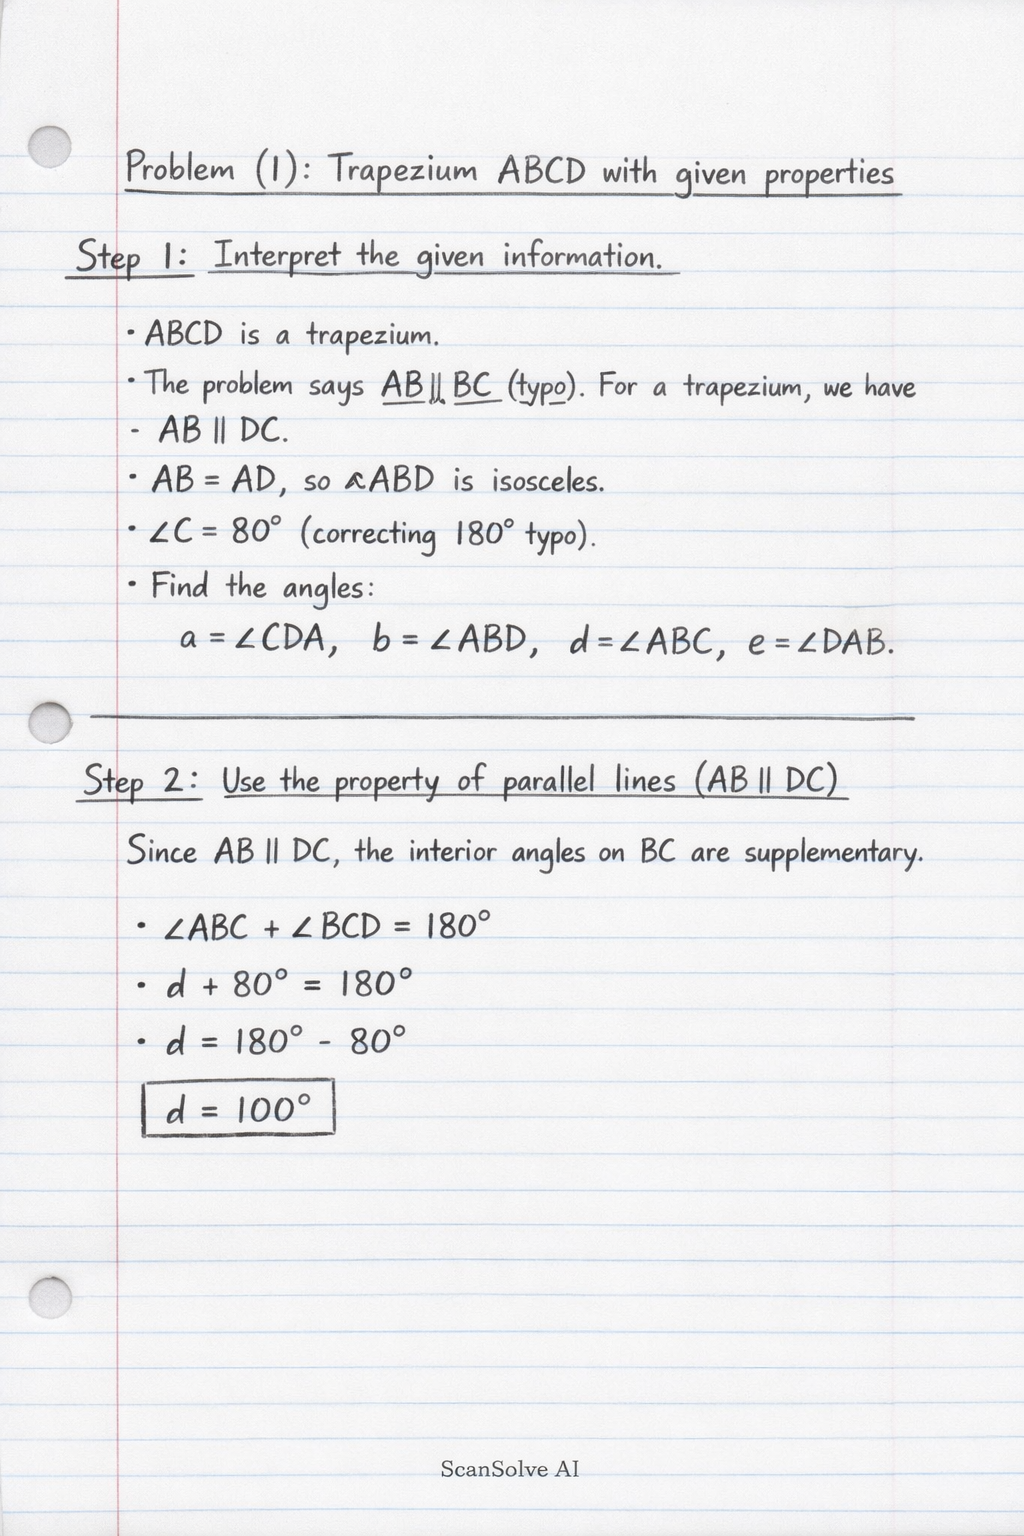 Problem (1): Trapezium ABCD with given properties
Step 1: Interpret the given information.
· ABCD is a trapezium.
· The problem says AB || BC (typo). For a trapezium, we have
- AB || DC.
· AB = AD, so ABD is isosceles.
· ∠C = 80° (correcting 180° typo).
· Find the angles:
a = ∠CDA, b = ∠ABD, d = ∠ABC, e = ∠DAB.
Step 2: Use the property of parallel lines (AB || DC)
Since AB || DC, the interior angles on BC are supplementary.
· ∠ABC + ∠BCD = 180°
· d + 80° = 180°
· d = 180° - 80°
d = 100°
ScanSolve AI